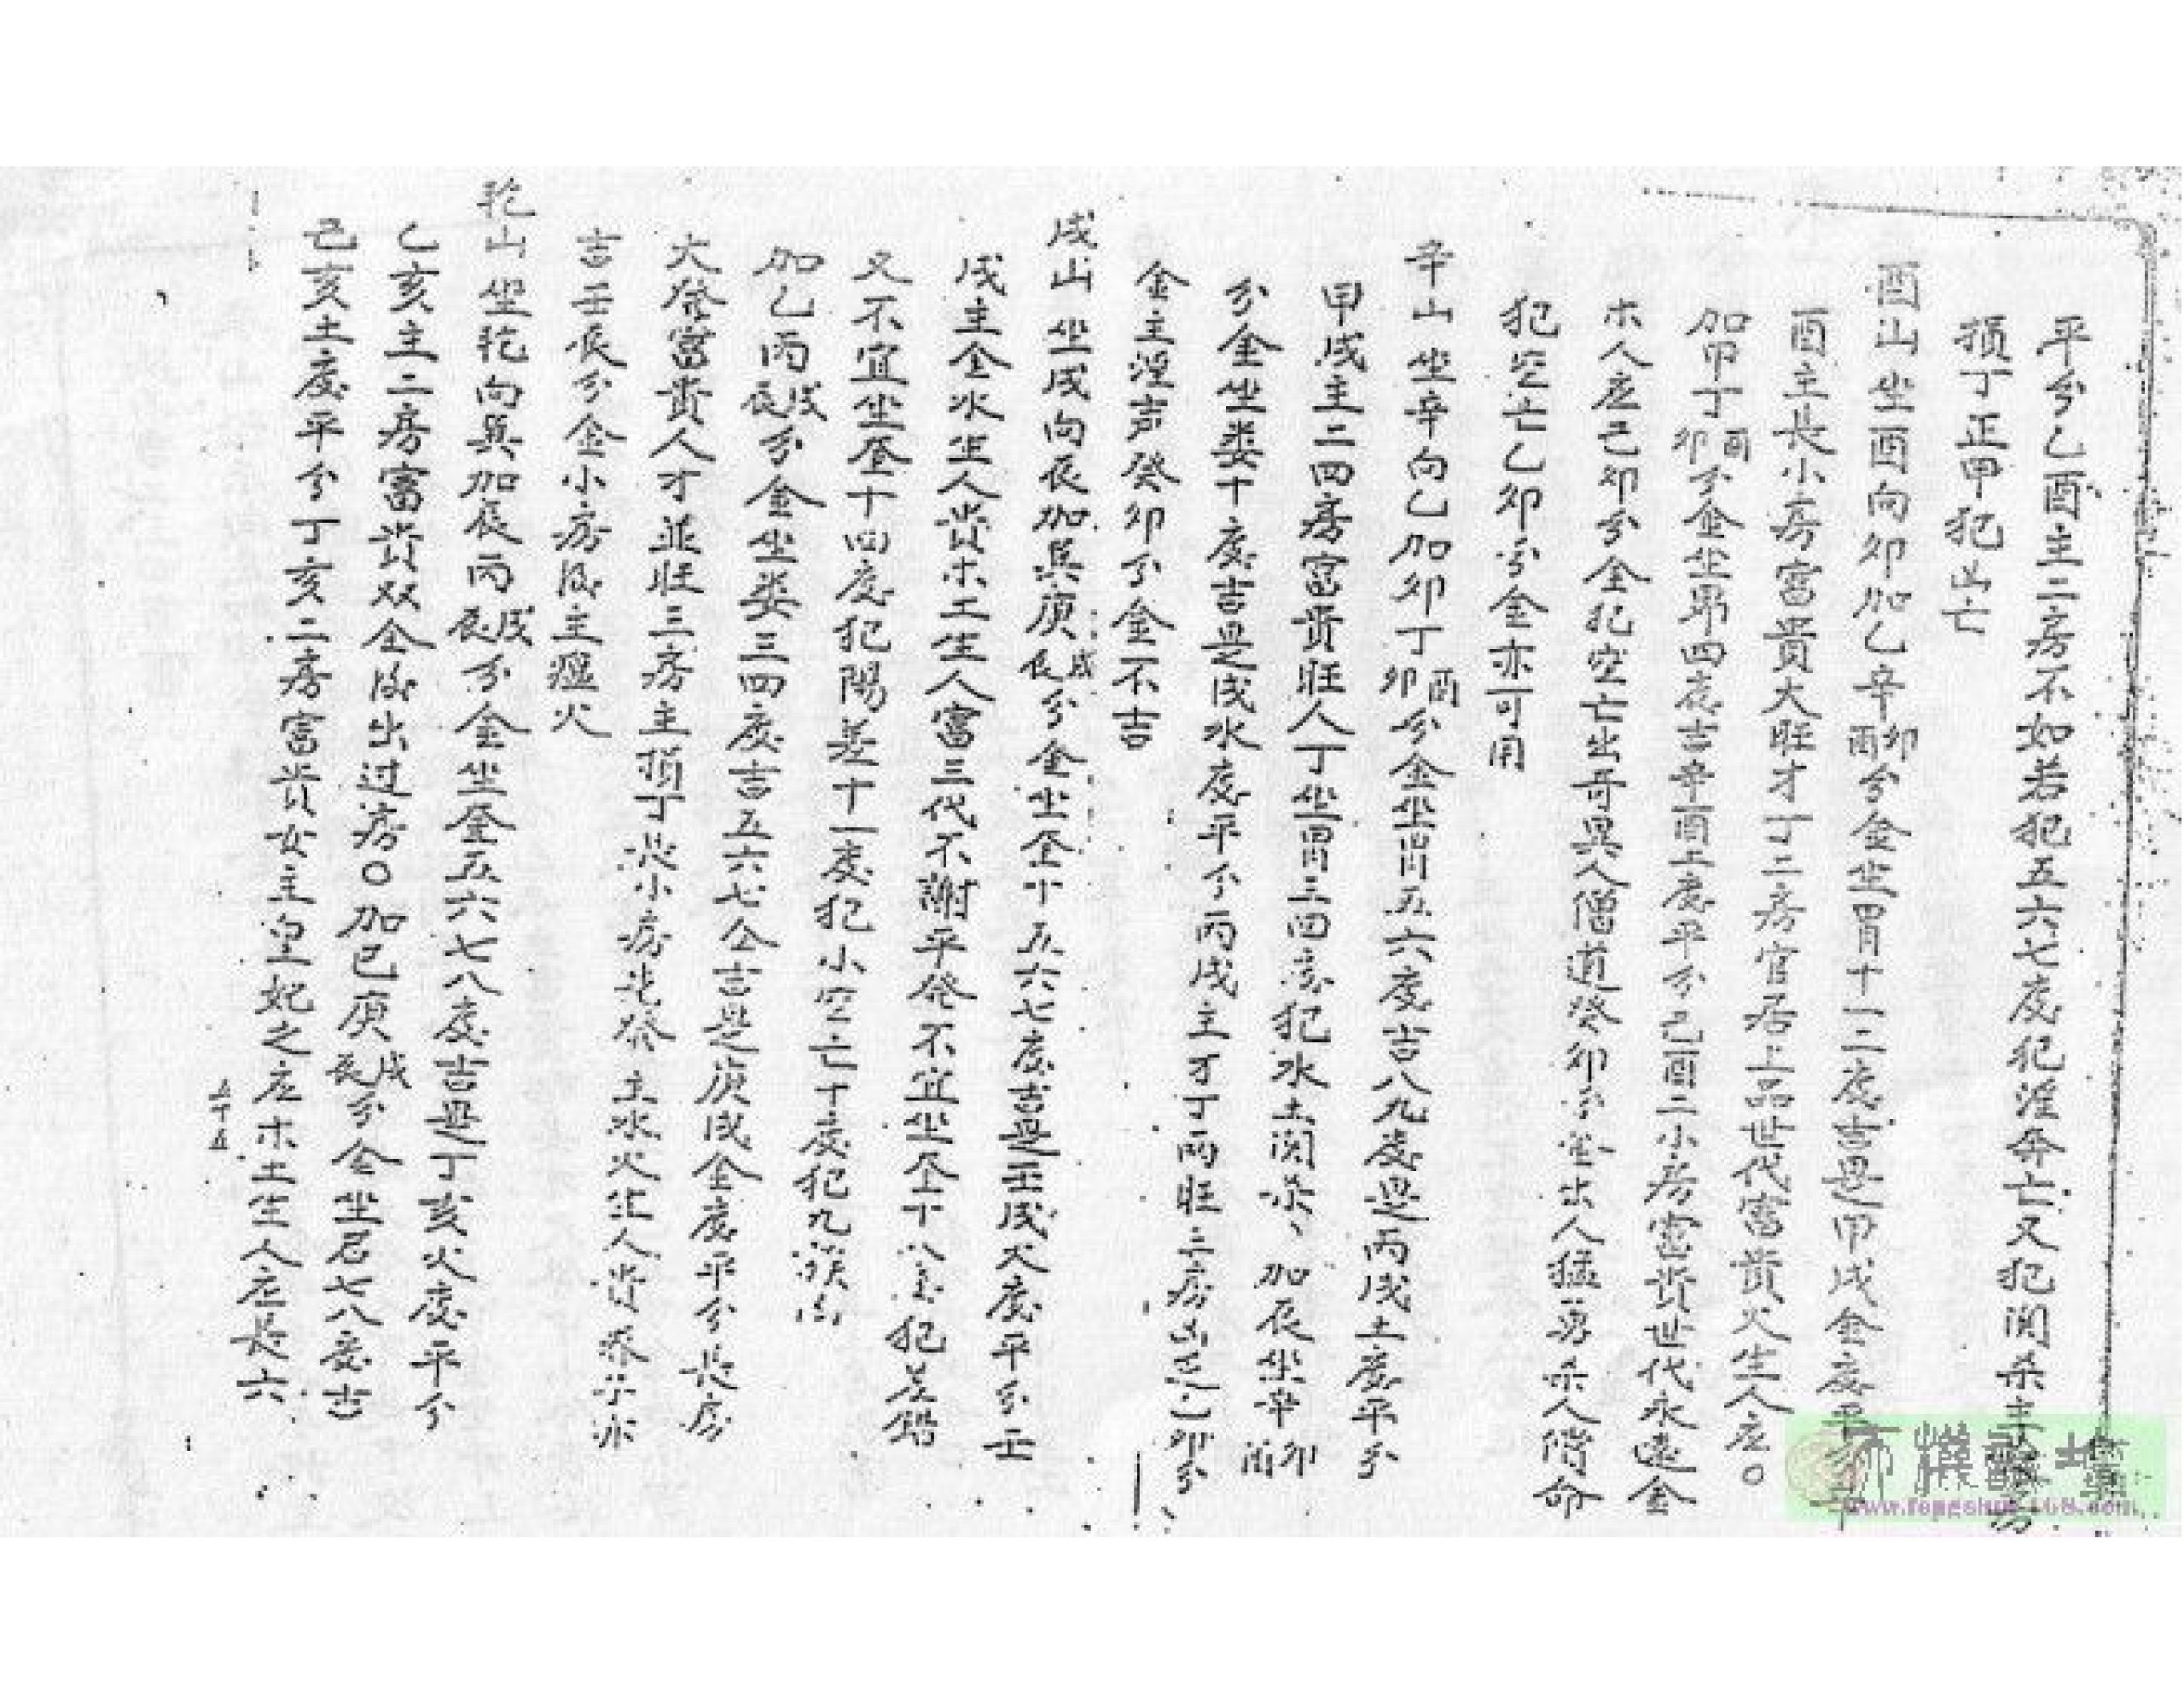 平分乙酉主二房不如若犯五六七度犯淫奔亡又犯関杀主
損丁正甲犯出亡
酉山坐酉向卯加乙辛卯酉分金坐胃十一二度吉是甲戌金度平分
酉主長小房富貴大旺才丁二房官居上品世代富貴火生人应○
加甲丁酉卯分金坐昴四度吉辛酉土度平分己酉二小房富貴世代永遠金
木人应己卯分金犯空亡出奇異人僧道癸卯分金出人猛勇杀人償命
犯空亡乙卯分金亦可用
辛山坐辛向乙加卯丁酉卯分金坐胃五六度吉八九度是丙戌土度平分
甲戌主二四房富貴旺人丁坐胃三四度犯水土関杀、加辰坐辛卯酉
分金坐娄十度吉是戌水度平分丙戌主才丁两旺三房出乙卯分
金主淫声癸卯分金不吉
戌山坐戌向辰加巽庚戌辰分金坐奎十五六七度吉是壬戌火度平分壬
戌主金水生人貴木土生人富三代不謝平发不宜坐奎十八度犯差錯
又不宜坐奎十四度犯陽差十一度犯小空亡十度犯九
加乙丙戌辰分金坐娄三四度吉五六七分吉是庚戌金度平分長房
大发富貴人才並旺三房主損丁長小房先发主水火生人
吉壬辰分金小房後主瘟火
乾山坐乾向巽加辰丙戌辰分金坐奎五六七八度吉是丁亥火度平分
乙亥主二房富貴双全後出过房○加巳庚戌辰分金坐危七八度吉
己亥土度平分丁亥二房富貴女主皇妃之应木土生人应長六
五十五
www.fengshui-168.com